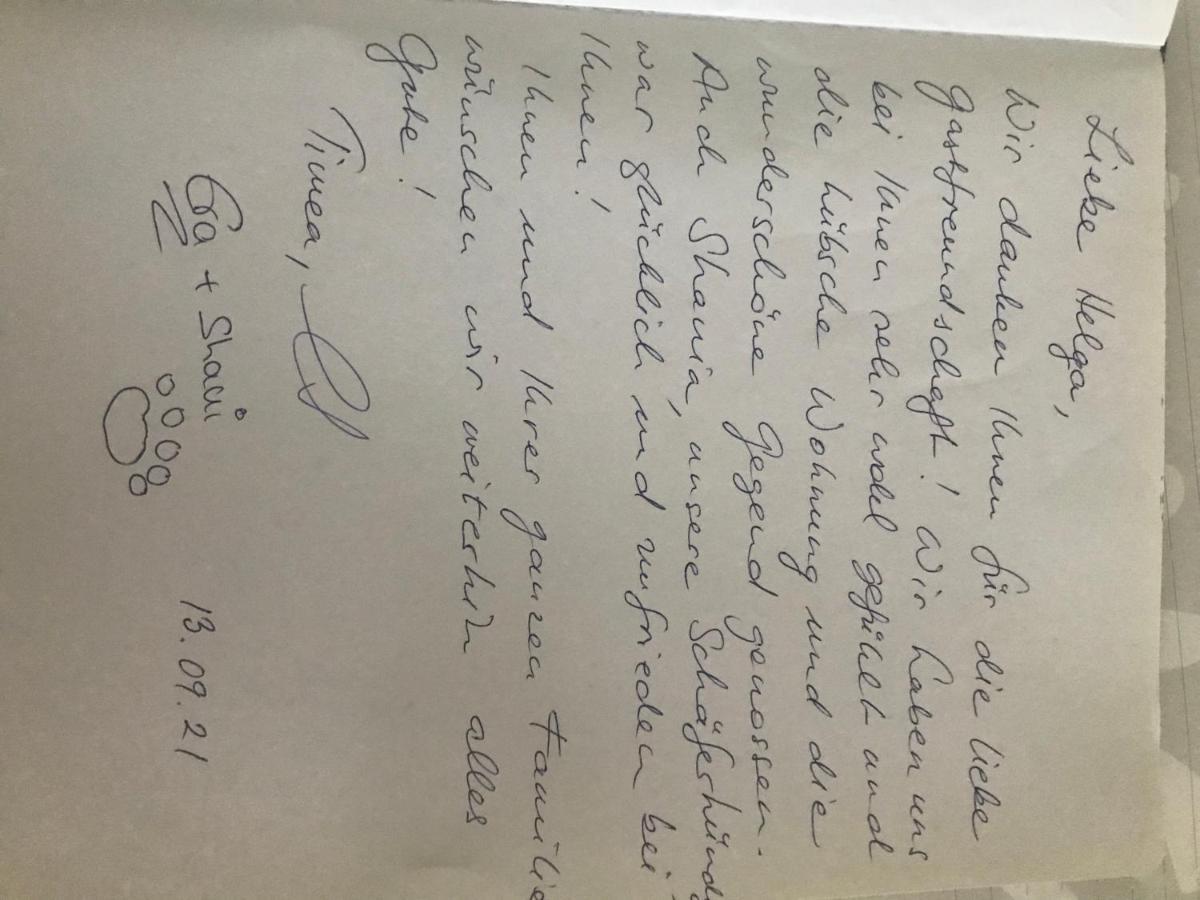 Liebe Helga,
Wir danken Ihnen für die liebe
Gastfreundschaft! Wir haben uns
bei Ihnen sehr wohl gefühlt und
die hübsche Wohnung und die
wunderschöne Gegend genossen.
Auch Shania, unsere Schäferhünd
war glücklich und zufrieden bei
Ihnen!
Ihnen und Ihrer ganzen Familie
wünschen wir weiterhin alles
Gute!
Timea,
+ Shani
13.09.21